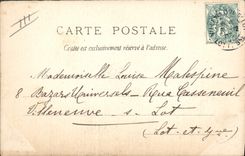 CARTE POSTALE
Ce côté est exclusivement réservé à l'adresse.
Mademoiselle Louise Malespine
8 Bazars Universels - Rue Casseneuil
Villeneuve s. Lot
(Lot-et-Gne)